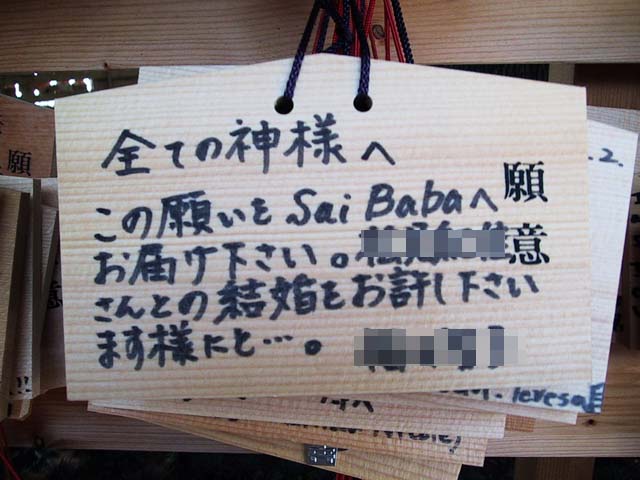 全ての神様へ
この願いをSai Babaへ
お届け下さい。
さんとの結婚をお許し下さい
ます様にと…。
願意
願
意
2.
Teresa